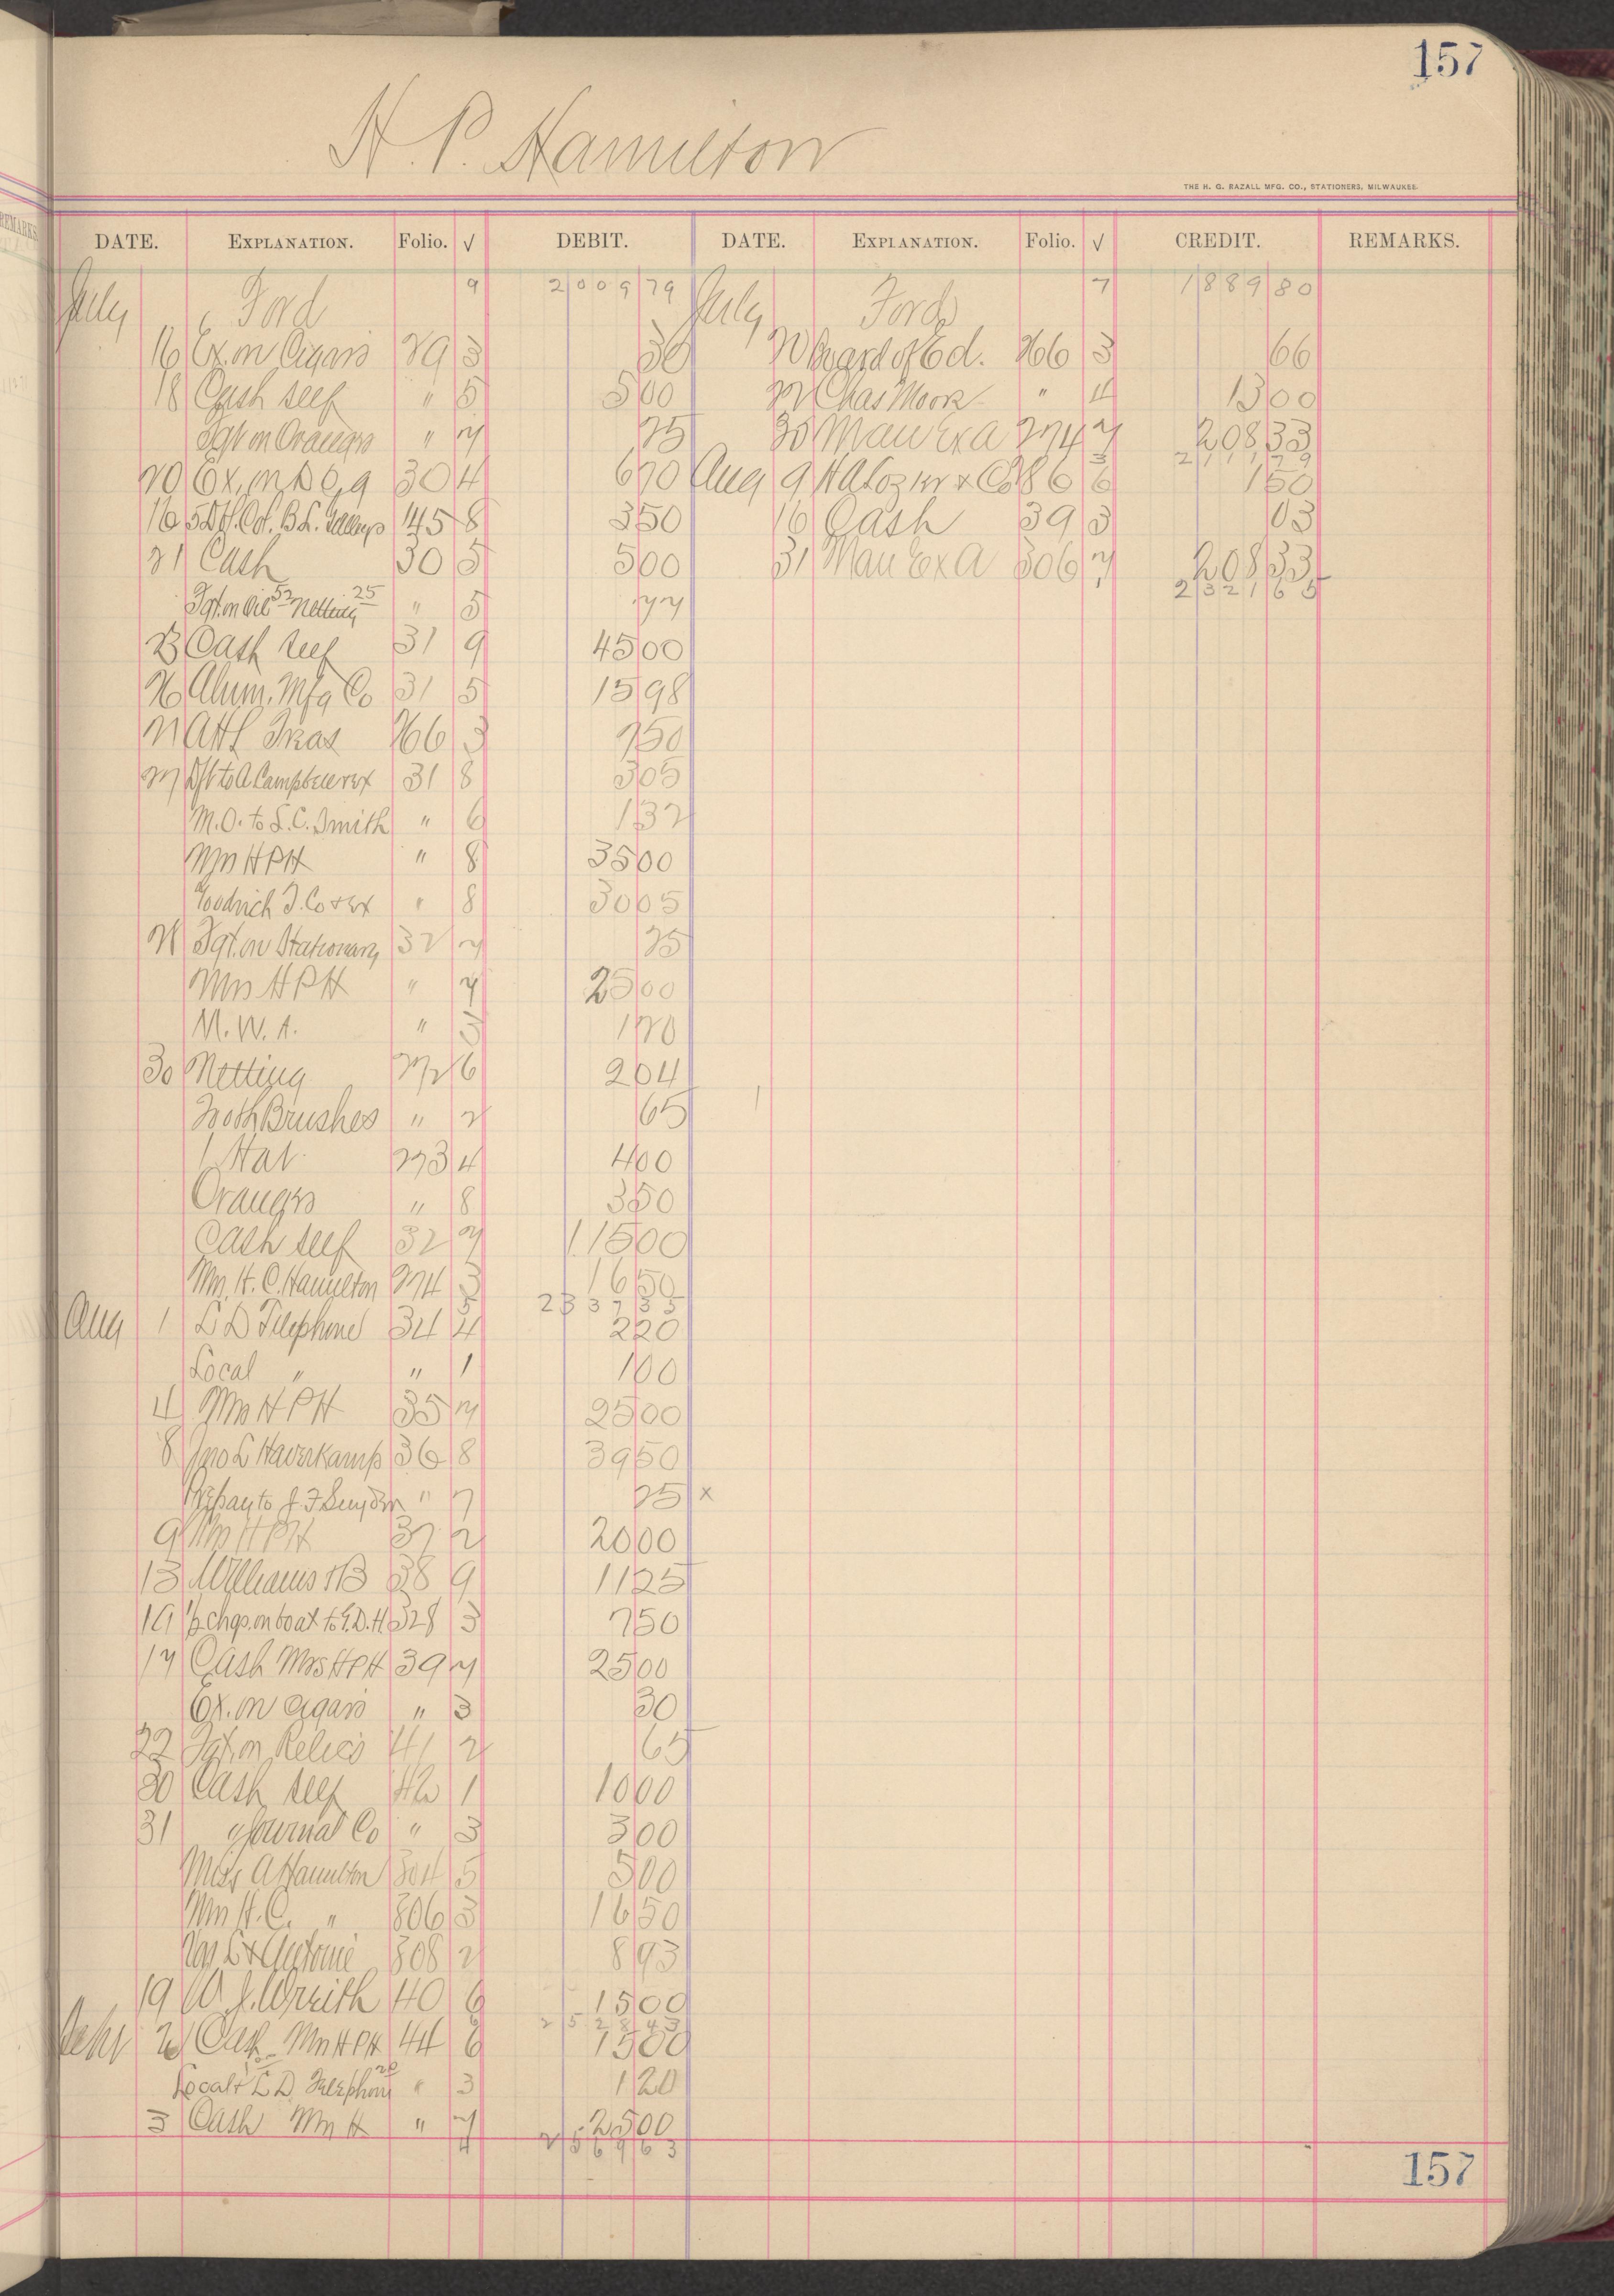 157
H. P. Hamilton
THE H. G. RAZALL MFG. CO., STATIONERS, MILWAUKEE.
DATE. EXPLANATION. Folio. √ DEBIT. DATE. EXPLANATION. Folio. √ CREDIT. REMARKS.
July Ford 9 2009 79 July Ford 7 1889 80
16 Ex. on Cigars 29 3 30 20 Board of Ed. 266 3 66
18 Cash self " 5 5 00 Chas Moore " 4 13 00
Fgt on Oranges " 7 25 30 Man Ex a 274 7 208 33
3 2111 79
20 Ex. on 30 4 6 70 Aug 9 & Co 286 6 1 50
16 145 8 3 50 16 Cash 39 3 03
21 Cash 30 5 5 00 31 Man Ex a 306 7 208 33
2321 65
Fgt. on Oil 52 Netting 25 " 5 77
23 Cash self 31 9 45 00
26 Alum. Mfg Co 31 5 15 98
266 3 7 50
27 Dft to A. Campbell & Ex 31 8 3 05
M.O. to S. C. Smith " 6 1 32
Mrs HPH " 8 35 00
Goodrich T. Co & Ex " 8 30 05
28 Fgt. on Stationary 32 7 25
Mrs HPH " 7 25 00
M. W. A. " 3 1 70
30 Netting 272 6 2 04
Tooth Brushes " 2 65
1 Hat 273 4 4 00
Oranges " 8 3 50
Cash self 32 7 115 00
Mrs. H. C. Hamilton 274 3 16 50
5 2337 35
Aug 1 L D Telephone 34 4 2 20
Local " " 1 1 00
4 Mrs HPH 35 7 25 00
8 Jno L Haverkamp 36 8 39 50
Prepay to J. F. " 7 25 x
9 Mrs HPH 37 2 20 00
13 Williams 38 9 11 25
19 ½ chgs. on boat to G. D. H 328 3 7 50
17 Cash Mrs HPH 39 7 25 00
Ex. on cigars " 3 30
22 Fgt. on Relics 41 2 65
30 Cash self 42 1 10 00
31 " Journal Co " 3 3 00
Miss A Hamilton 304 5 5 00
Mrs H. C. " 306 3 16 50
308 2 8 93
19 W. J. Wreith 40 6 15 00
2528 43
Sept 2 Cash Mrs HPH 44 6 15 00
Local & L D Telephone 20 " 3 1 20
3 Cash Mrs H " 7 25 00
4 2569 63
157